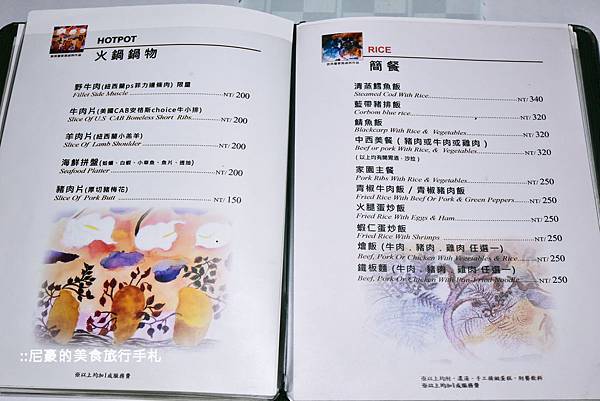 HOTPOT
火鍋鍋物
野牛肉(紐西蘭ps菲力邊條肉) 限量
Fillet Side Muscle NT/200
牛肉片(美國CAB安格斯choice牛小排)
Slice Of U.S CAB Boneless Short Ribs. NT/200
羊肉片(紐西蘭小羔羊)
Slice Of Lamb Shoulder NT/200
Seafood Platter NT/200
豬肉片(厚切豬梅花)
Slice Of Pork Butt NT/150
※以上均加1成服務費
::尼豪的美食旅行手札
RICE
簡餐
清蒸鱈魚飯
Steamed Cod With Rice NT/340
藍帶豬排飯
Corbom blue rice NT/320
鯖魚飯
Blackcarp With Rice & Vegetables NT/320
中西美餐 ( 豬肉或牛肉或雞肉 )
Beef or pork With Rice, & Vegetables NT/320
家園主餐
Pork Ribs With Rice & Vegetables NT/250
青椒牛肉飯 / 青椒豬肉飯
Fried Rice With Beef Or Pork & Green Peppers NT/250
火腿蛋炒飯
Fried Rice With Eggs & Ham NT/250
蝦仁蛋炒飯
Fried Rice With Shrimps NT/250
燴飯 (牛肉﹒豬肉﹒雞肉 任選一)
Beef, Pork Or Chicken With Vegetables & Rice NT/250
鐵板麵 (牛肉﹒豬肉﹒雞肉 任選一)
Beef, Pork Or Chicken With Pan-Fried Noodle NT/250
※以上均加1成服務費